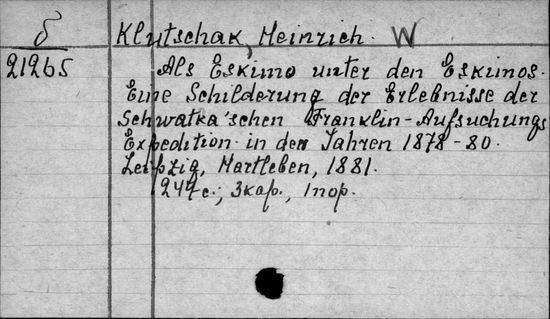 δ Klutschak, Heinrich. W
21265 Als Eskimo unter den Eskimos.
Eine Schilderung der Erlebnisse der
Schwatka'schen Franklin-Aufsuchungs
Expedition in den Jahren 1878-80.
Leipzig, Hartleben, 1881.
247 с., 3 кар., 1 пор.